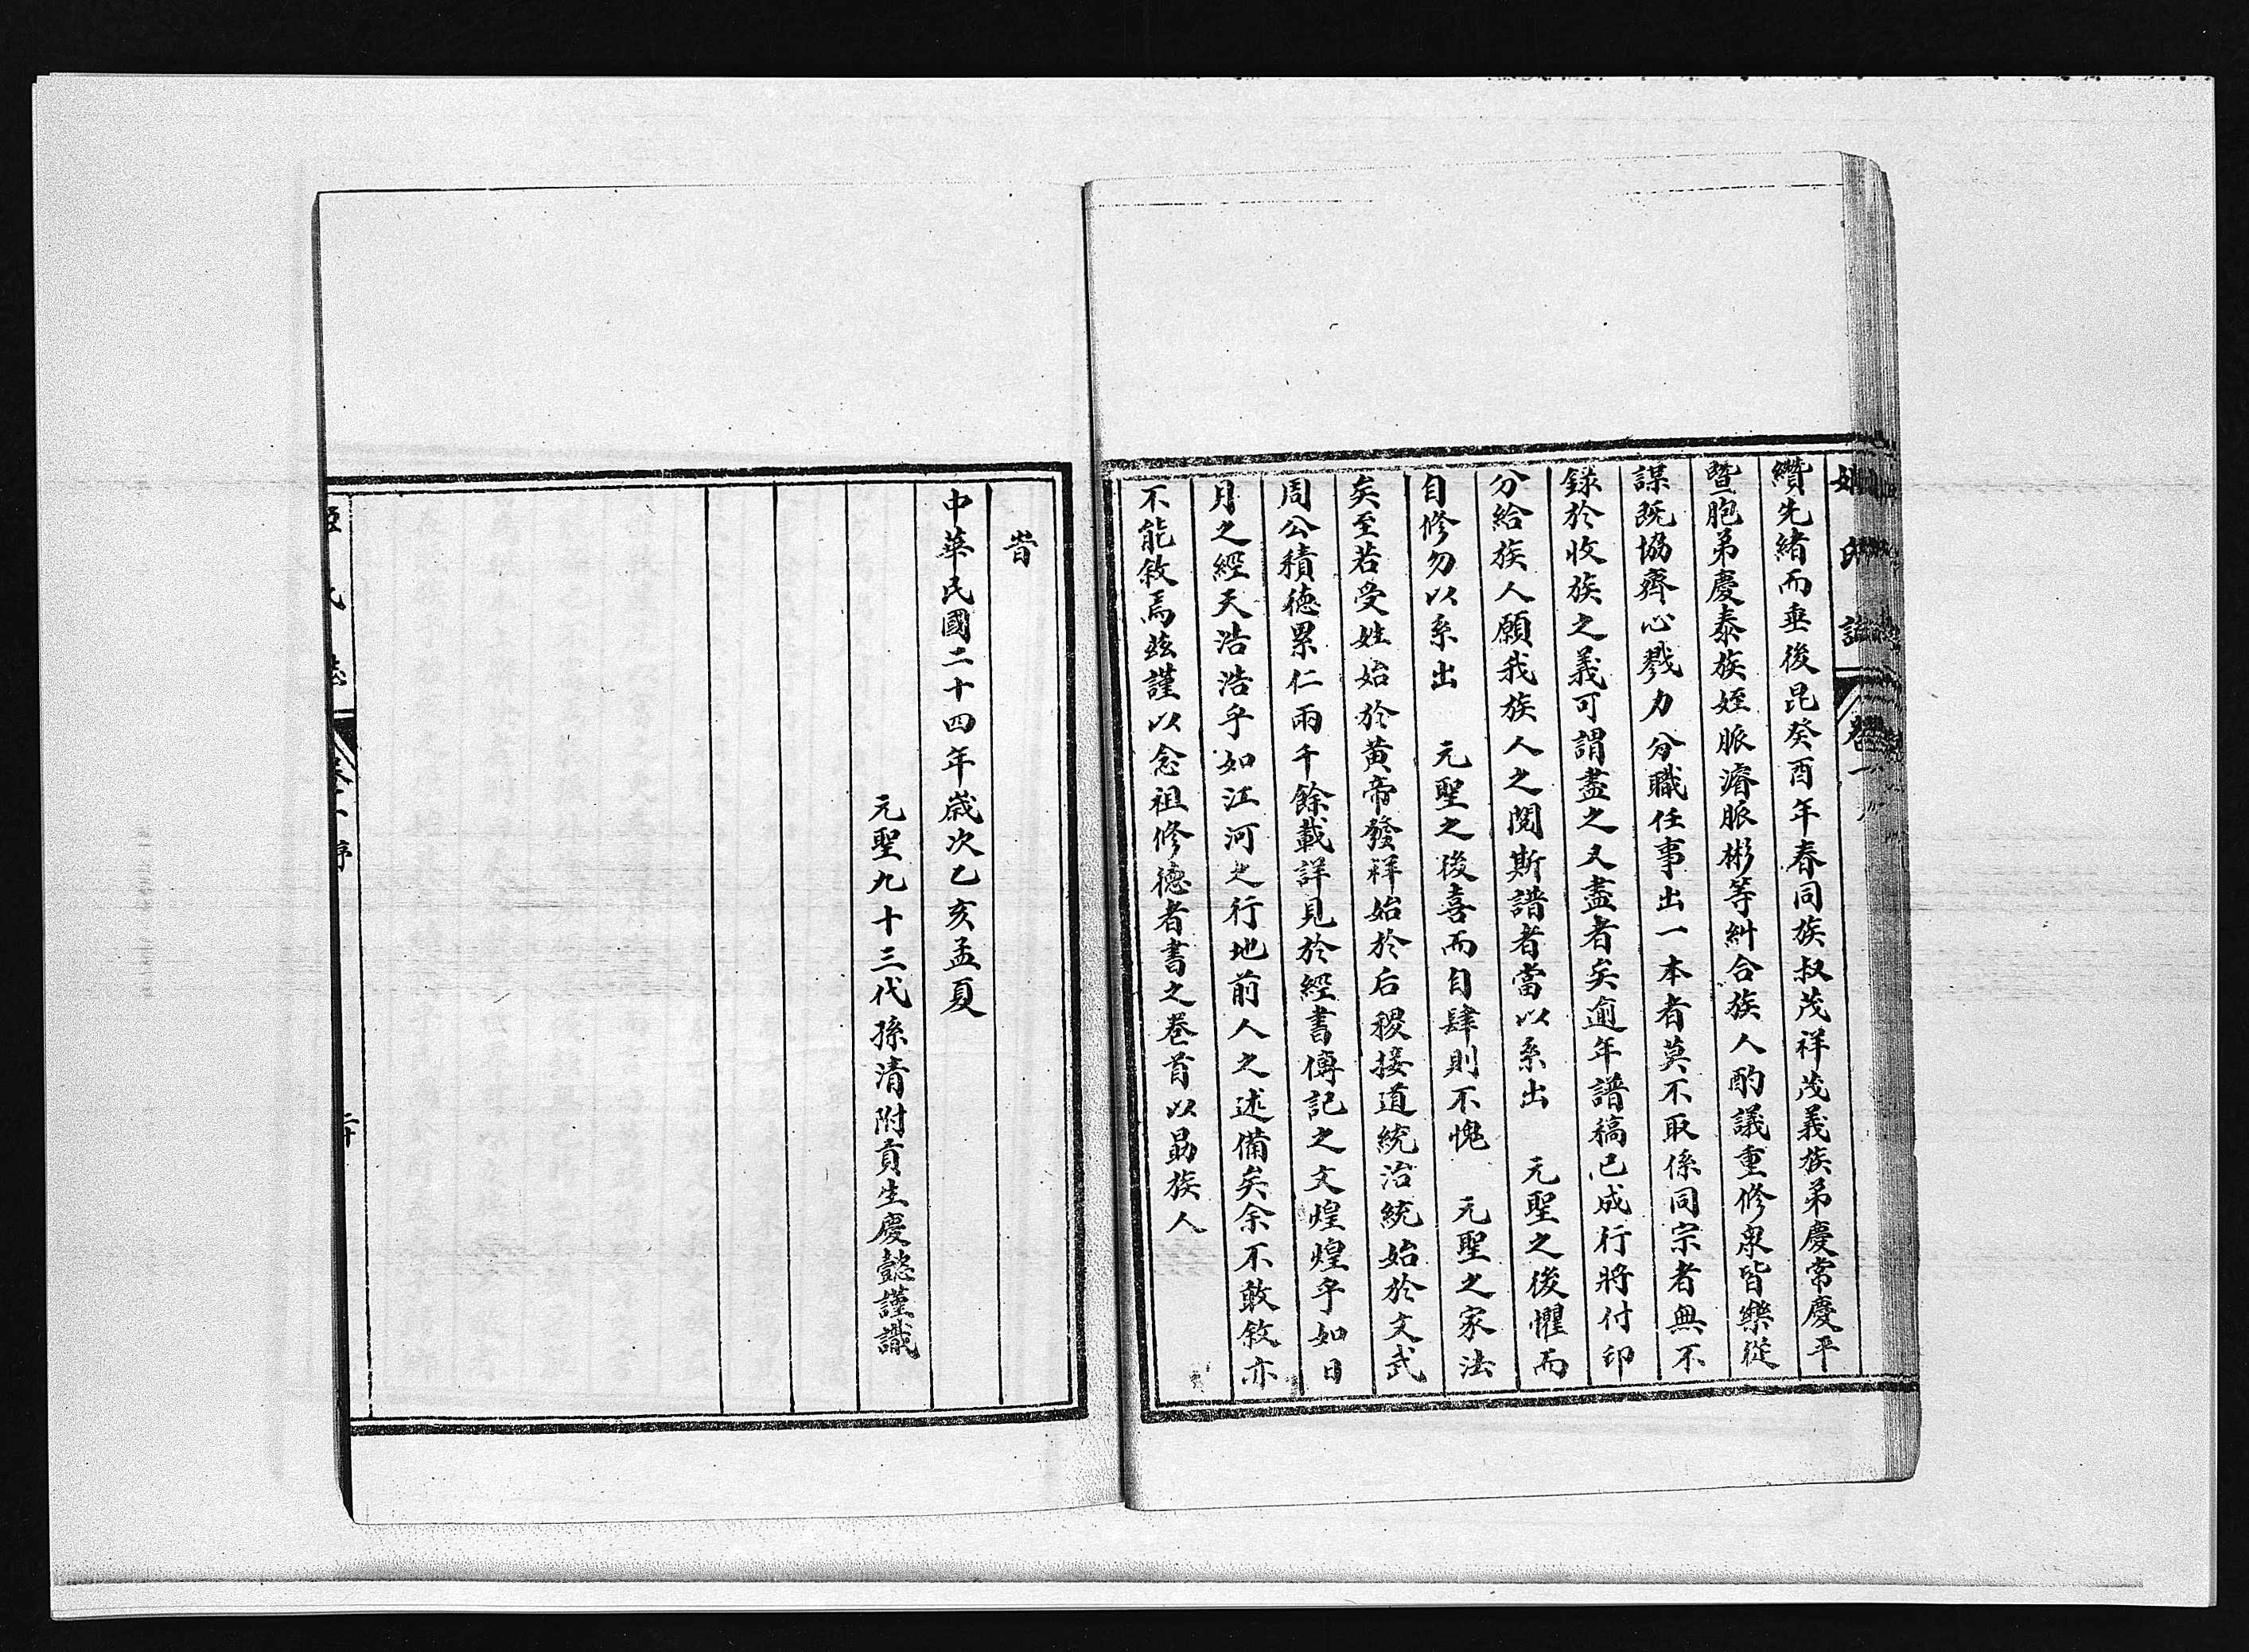 姬氏誌 卷一
纘先緒而垂後昆癸酉年春同族叔茂祥茂義族弟慶常慶平
暨胞弟慶泰族姪脈濬脈彬等糾合族人酌議重修泉皆樂從
謀既協齊心戮力分職任事出一本者莫不取係同宗者無不
錄於收族之義可謂盡之又盡者矣逾年譜稿已成行將付印
分給族人願我族人之閱斯譜者當以系出　元聖之後懼而
自修勿以系出　元聖之後喜而自肆則不愧　元聖之家法
矣至若受姓始於黃帝發祥始於后稷接道統治統始於文武
周公積德累仁兩千餘載詳見於經書傳記之文煌煌乎如日
月之經天浩浩乎如江河之行地前人之述備矣余不敢敘亦
不能敘焉茲謹以念祖修德者書之卷首以勗族人
旹
中華民國二十四年歲次乙亥孟夏
元聖九十三代孫清附貢生慶懿謹識
姬氏誌 卷一 序 二十